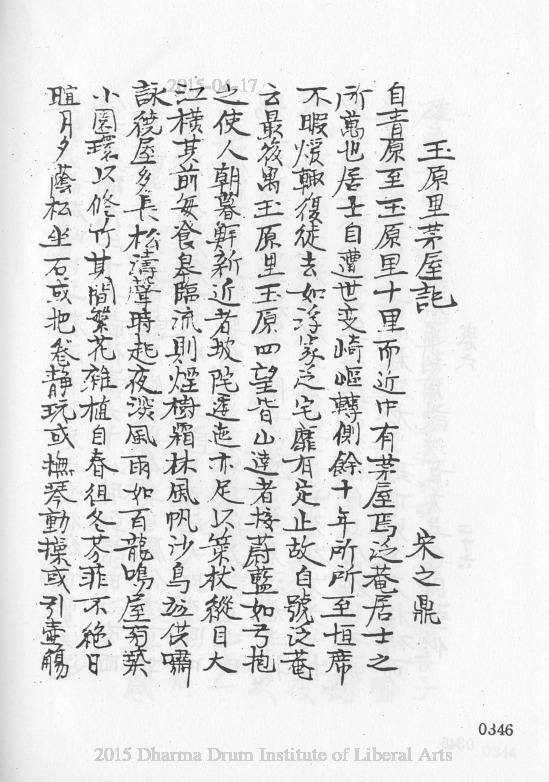 2015-04-17
玉原里茅屋記 宋之鼎
自青原至玉原里十里而近中有茅屋焉泛菴居士之
所萬也居士自遭世变崎嶇轉側餘十年所所至恒席
不暇煖輙復徒去如浮家泛宅靡有定止故自號泛菴
云最後寓玉原里玉原四望皆山遠者接蔚藍如弓抱
之使人朝暮鮮新近者坡陀逶迤亦足以策杖縱目大
江橫其前每飡臯臨流則煙樹霜林風帆沙鳥竝供嘯
詠繞屋多長松濤聲時起夜淡風雨如百龍鳴屋旁築
小園環以修竹其間繁花雜植自春徂冬芬菲不絶日
暄月夕蔭松坐石或把卷靜玩或撫琴動操或引壺觴
0346
2015 Dharma Drum Institute of Liberal Arts